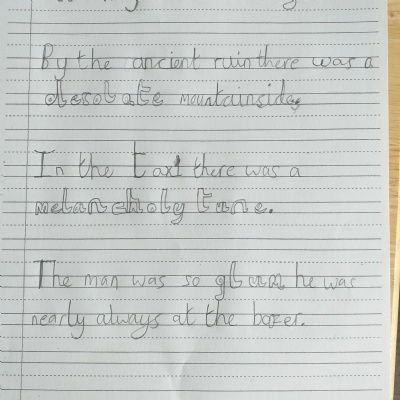 By the ancient ruin there was a
desolate mountainside,
In the taxi there was a
melancholy tune.
The man was so glum he was
nearly always at the boxer.